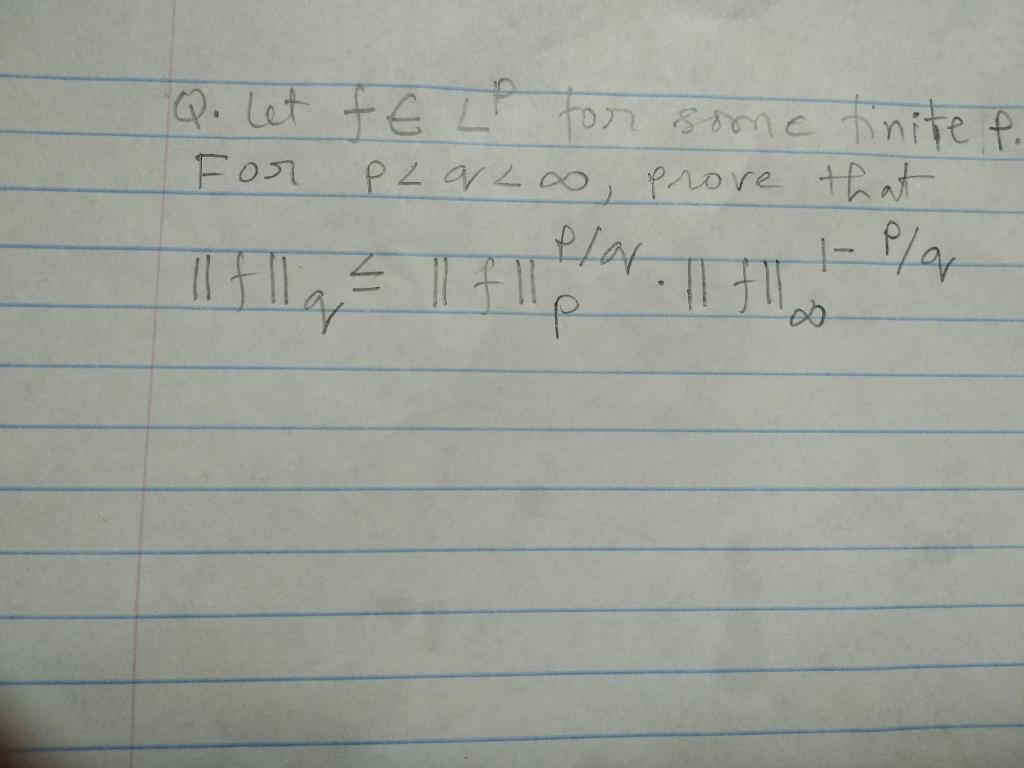 Q. Let f ∈ L^p for some finite p.
For p < q < ∞, prove that
||f||_q ≤ ||f||_p^{p/q} · ||f||_∞^{1-p/q}